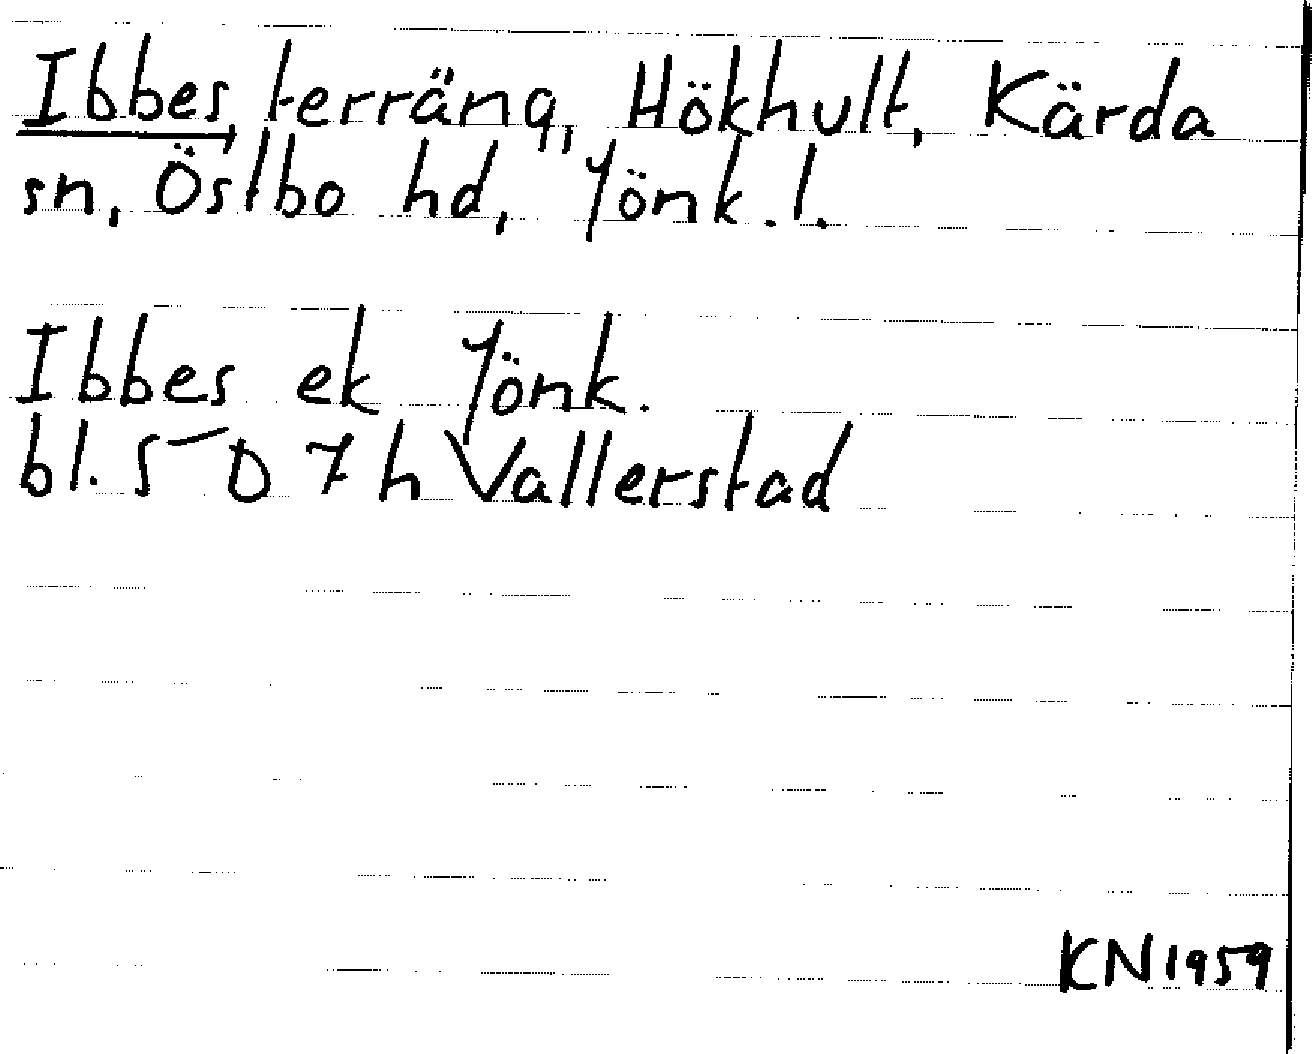 Ibbes, terräng, Hökhult, Kärda
sn, Östbo hd, Jönk. l.
Ibbes ek Jönk.
bl. 5 D 7 h Vallerstad
KN 1959